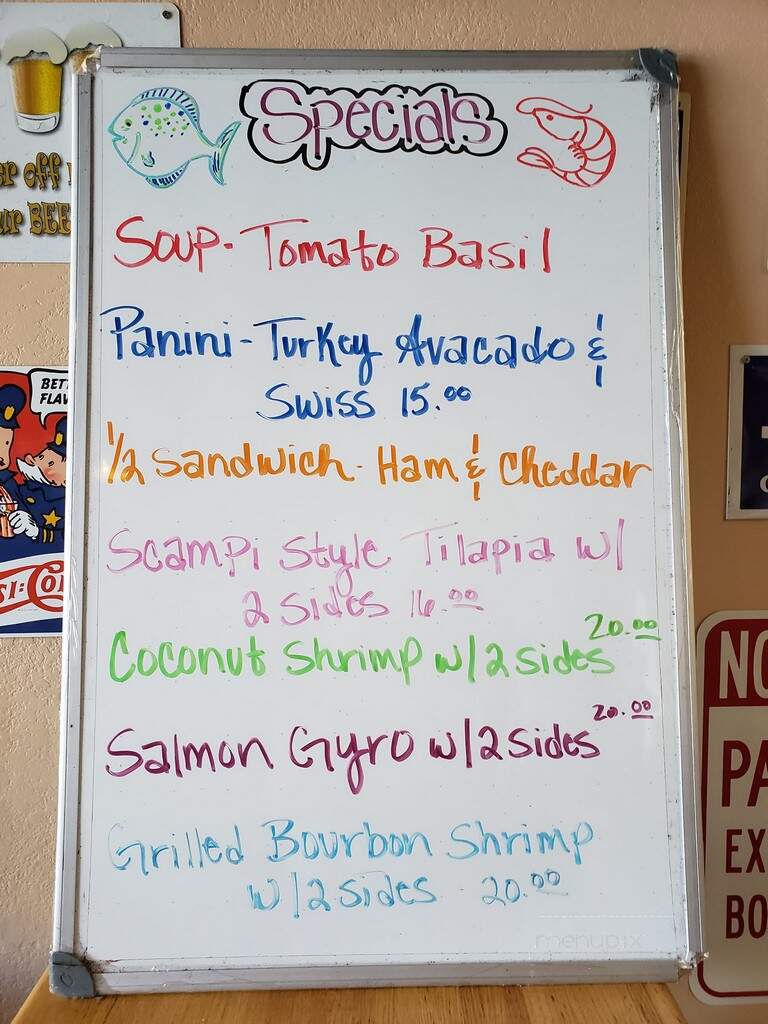 Specials
Soup - Tomato Basil
Panini - Turkey Avacado &
Swiss 15.00
1/2 Sandwich - Ham & Cheddar
Scampi Style Tilapia w/
2 sides 16.00
20.00
Coconut Shrimp w/2 sides
20.00
Salmon Gyro w/2 sides
Grilled Bourbon Shrimp
w/2 sides 20.00
menupix
BEE
BET
FLAV
NO
PA
EX
BO